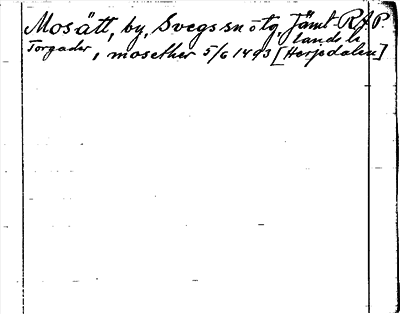 Mosätt, by, Svegs sn o tg, Jämt- RAP.
lands l.
Torgader, mosether 5/6 1493 [Herjedalen]